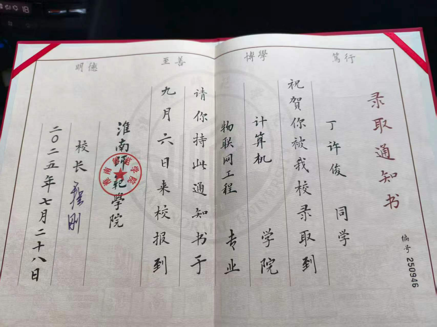 明德　至善　博學　篤行
录取通知书
编号 250946
丁许俊 同学
祝贺你被我校录取到
计算机 学院
物联网工程 专业
请你持此通知书于
九月六日来校报到
淮南师范学院
校长
二〇二五年七月二十八日